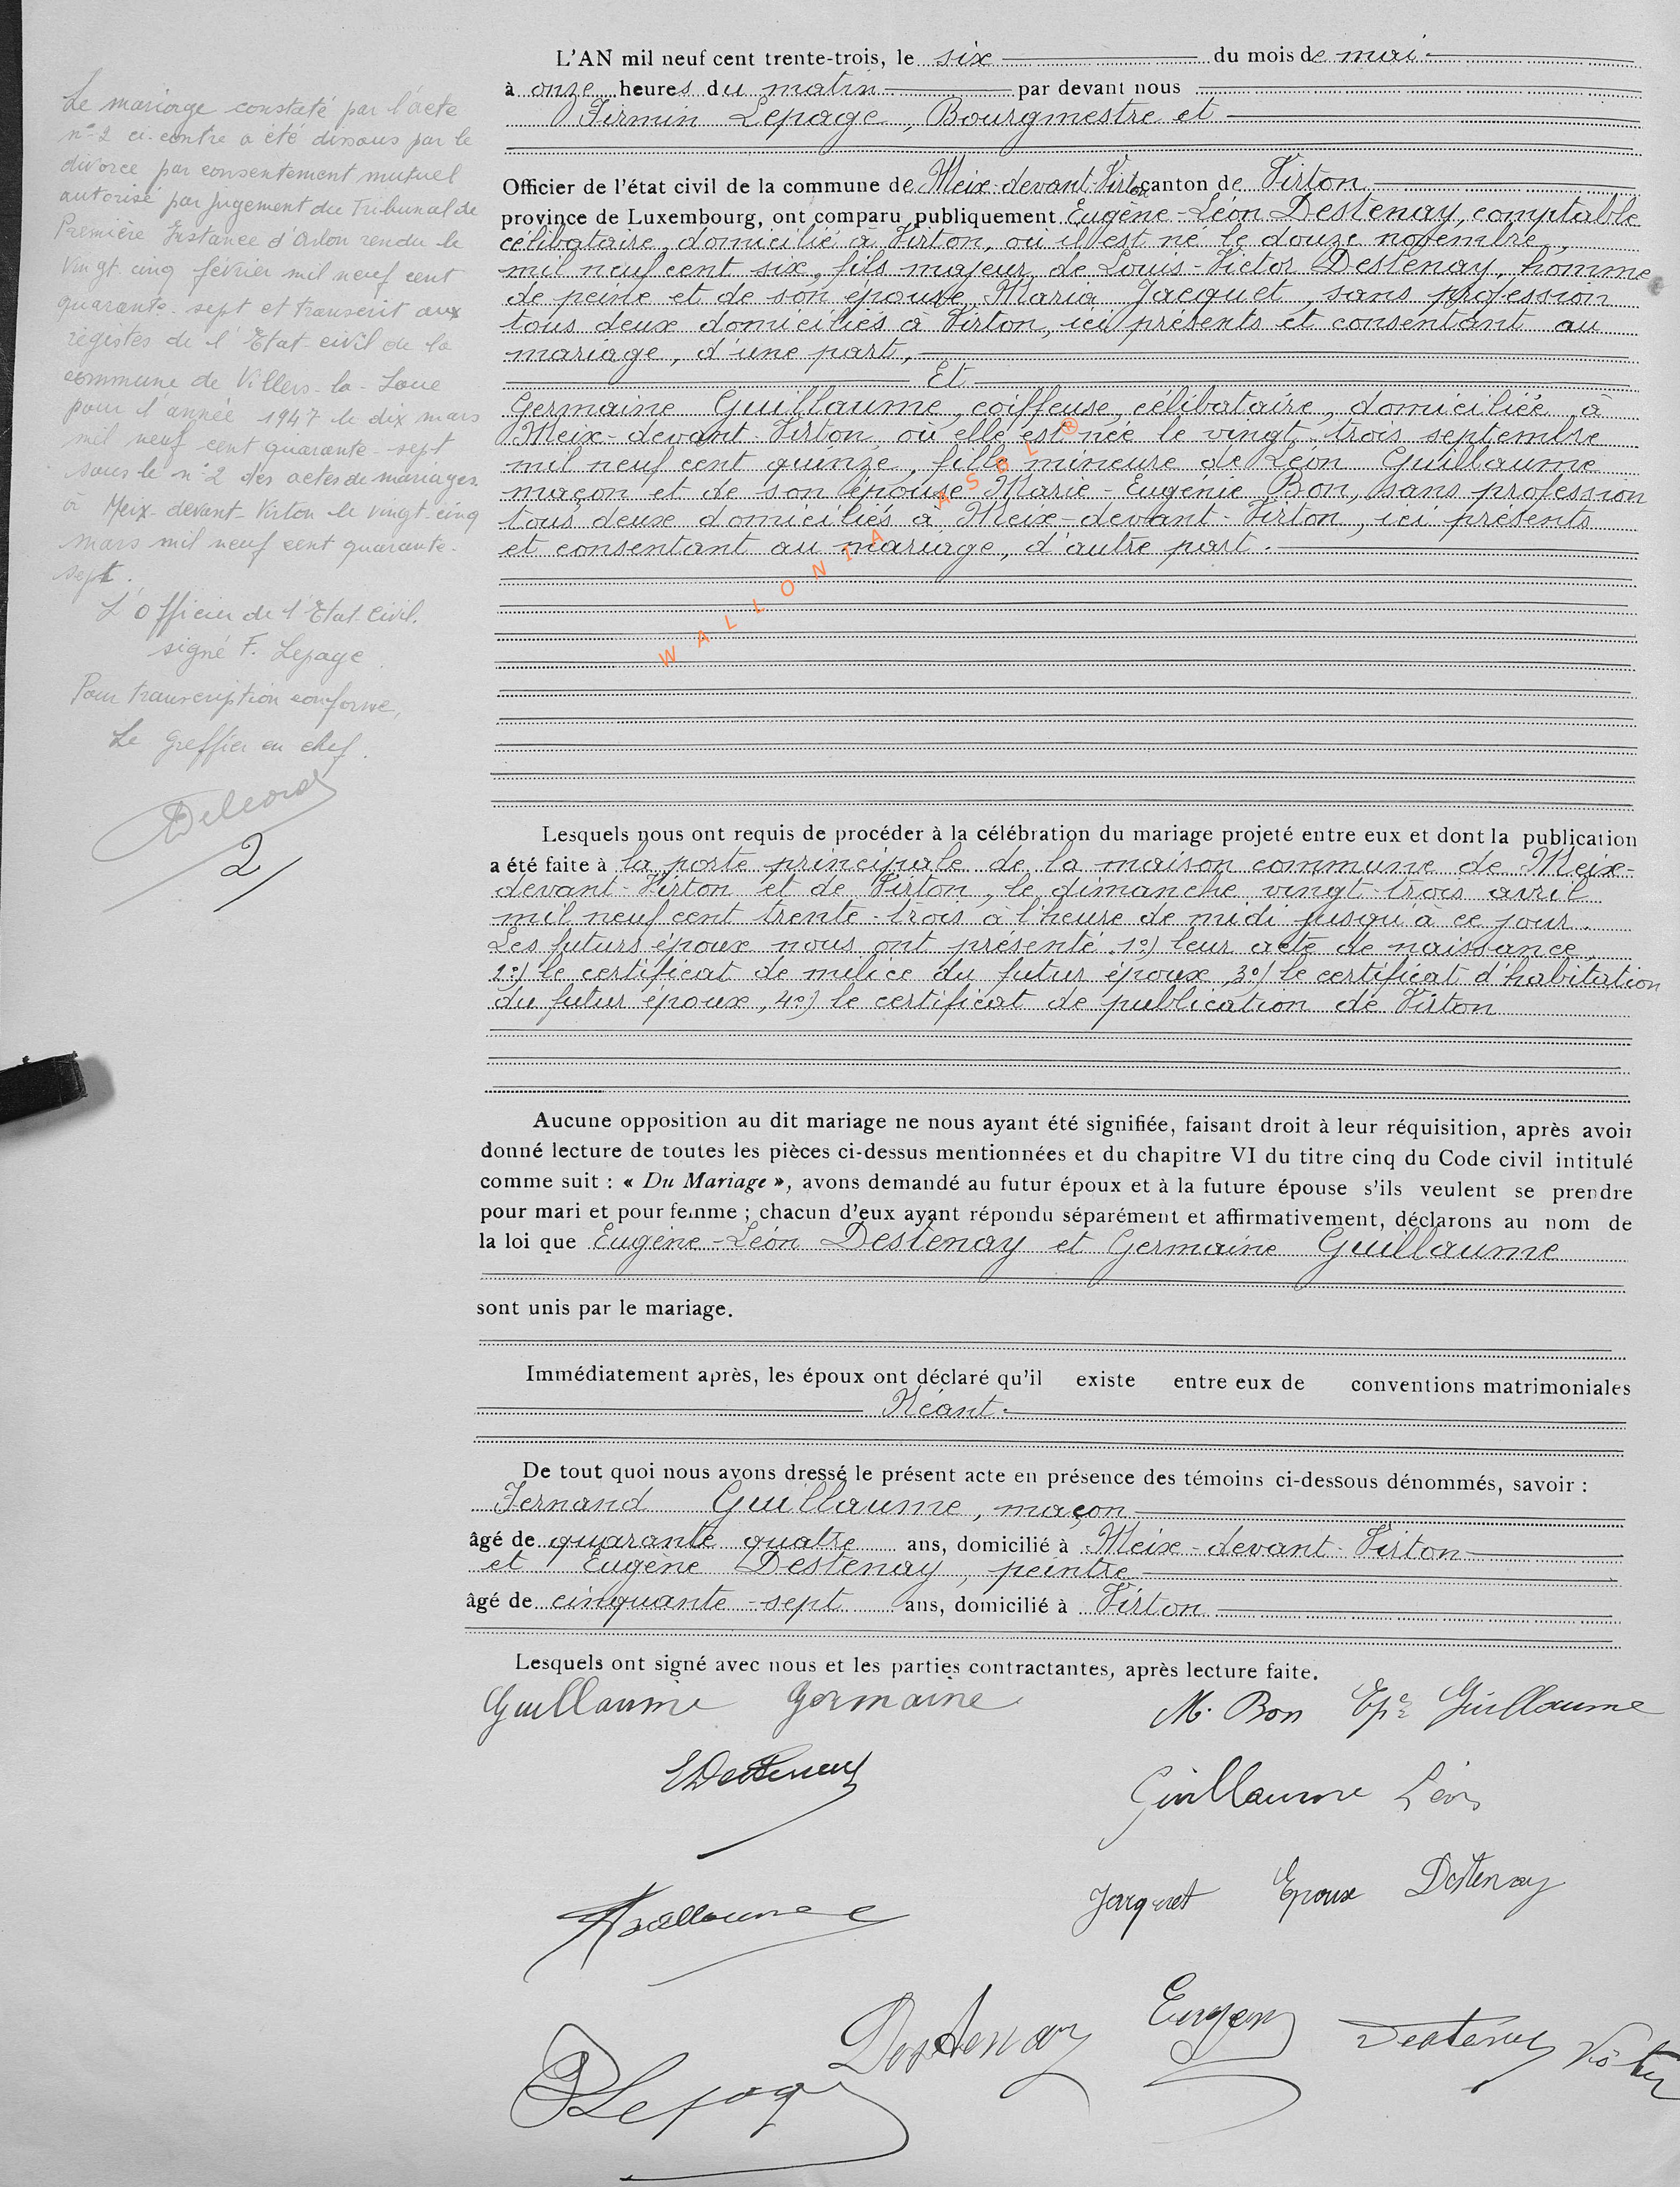 Le mariage constaté par l'acte
n° 2 ci-contre a été dissous par le
divorce par consentement mutuel
autorisé par jugement du Tribunal de
Première Instance d'Arlon rendu le
vingt-cinq février mil neuf cent
quarante-sept et transcrit aux
registes de l'Etat-civil de la
commune de Villers-la-Loue
pour l'année 1947 le dix mars
mil neuf cent quarante-sept
sous le n° 2 des actes de mariages
à Meix-devant-Virton le vingt-cinq
mars mil neuf cent quarante-
sept.
L'officier de l'Etat-Civil.
signé F. Lepage
Pour transcription conforme,
Le Greffier en chef.
2
L'AN mil neuf cent trente-trois, le six du mois de mai
à onze heures du matin par devant nous
Firmin Lepage, Bourgmestre et
Officier de l'état civil de la commune de Meix-devant-Virton canton de Virton
province de Luxembourg, ont comparu publiquement Eugène-Léon Destenay, comptable
célibataire, domicilié à Virton, où il est né le douze novembre,
mil neuf cent six, fils majeur de Louis-Victor Destenay, homme
de peine et de son épouse Maria Jacquet, sans profession
tous deux domiciliés à Virton, ici présents et consentant au
mariage, d'une part,
Et
Germaine Guillaume, coiffeuse, célibataire, domiciliée à
Meix-devant-Virton où elle est née le vingt-trois septembre
mil neuf cent quinze, fille mineure de Léon Guillaume
maçon et de son épouse Marie-Eugénie Bon, sans profession
tous deux domiciliés à Meix-devant-Virton, ici présents
et consentant au mariage, d'autre part.
WALLONIA ASBL ®
Lesquels nous ont requis de procéder à la célébration du mariage projeté entre eux et dont la publication
a été faite à la porte principale de la maison commune de Meix-
devant-Virton et de Virton, le dimanche vingt-trois avril
mil neuf cent trente-trois à l'heure de midi jusqu'à ce jour.
Les futurs époux nous ont présenté 1°) leur acte de naissance,
2°) le certificat de milice du futur époux, 3°) le certificat d'habitation
du futur époux, 4°) le certificat de publication de Virton
Aucune opposition au dit mariage ne nous ayant été signifiée, faisant droit à leur réquisition, après avoir
donné lecture de toutes les pièces ci-dessus mentionnées et du chapitre VI du titre cinq du Code civil intitulé
comme suit : « Du Mariage », avons demandé au futur époux et à la future épouse s'ils veulent se prendre
pour mari et pour femme ; chacun d'eux ayant répondu séparément et affirmativement, déclarons au nom de
la loi que Eugène-Léon Destenay et Germaine Guillaume
sont unis par le mariage.
Immédiatement après, les époux ont déclaré qu'il existe entre eux de conventions matrimoniales
Néant.
De tout quoi nous avons dressé le présent acte en présence des témoins ci-dessous dénommés, savoir :
Fernand Guillaume, maçon
âgé de quarante quatre ans, domicilié à Meix-devant-Virton
et Eugène Destenay, peintre
âgé de cinquante-sept ans, domicilié à Virton
Lesquels ont signé avec nous et les parties contractantes, après lecture faite.
Guillaume Germaine
M. Bon Epse Guillaume
EDestenay
Guillaume Léon
Jacquet Epouse Destenay
Guillaume
Destenay Eugène
Destenay Victor
Lepage